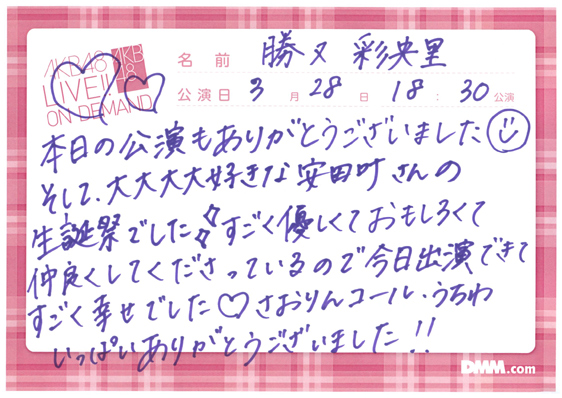 AKB48
LIVE!!
ON DEMAND
AKB
48
名前 勝又 彩央里
公演日 3月28日 18:30公演
本日の公演もありがとうございました
そして、大大大大好きな安田叶さんの
生誕祭でした すごく優しくておもしろくて
仲良くしてくださっているので今日出演できて
すごく幸せでした♡さおりんコール、うちわ
いっぱいありがとうございました!!
DMM.com